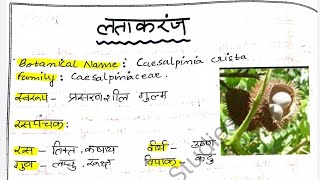 लताकरंज
Botanical Name: Caesalpinia crista
Family: Caesalpiniaceae.
स्वरूप - प्रसरणशील गुल्म
रसपंचक:
रस - तिक्त, कषाय वीर्य - उष्ण
गुण - लघु, रूक्ष विपाक - कटु